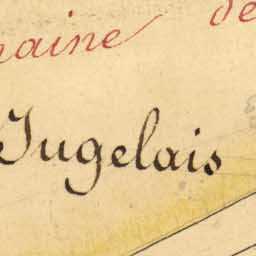 maine de
Jugelais